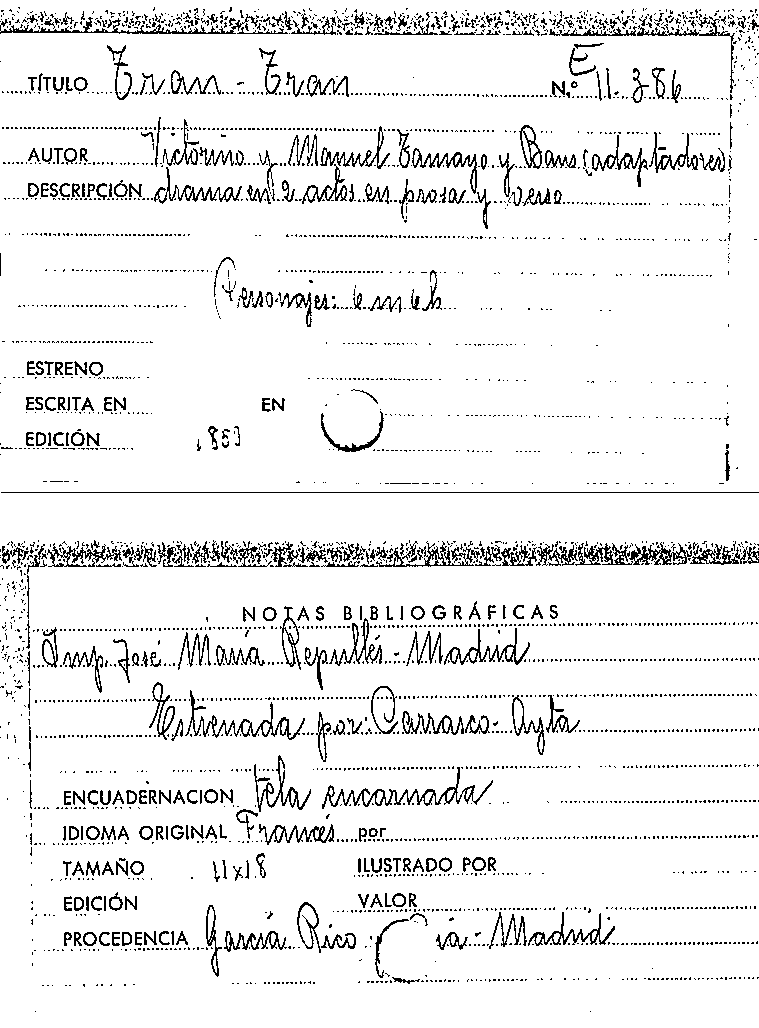 TÍTULO Tran - Tran N.º E 11.386
AUTOR Victorino y Manuel Tamayo y Baus (adaptadores)
DESCRIPCIÓN drama en 2 actos en prosa y verso
Personajes: 6 m 6 h
ESTRENO
ESCRITA EN EN
EDICIÓN
NOTAS BIBLIOGRÁFICAS
Imp. José María Repullés - Madrid
Estrenada por: Carrasco - Ayta
ENCUADERNACION tela encarnada
IDIOMA ORIGINAL Francés por
TAMAÑO 11x18 ILUSTRADO POR
EDICIÓN VALOR
PROCEDENCIA García Rico - Madrid